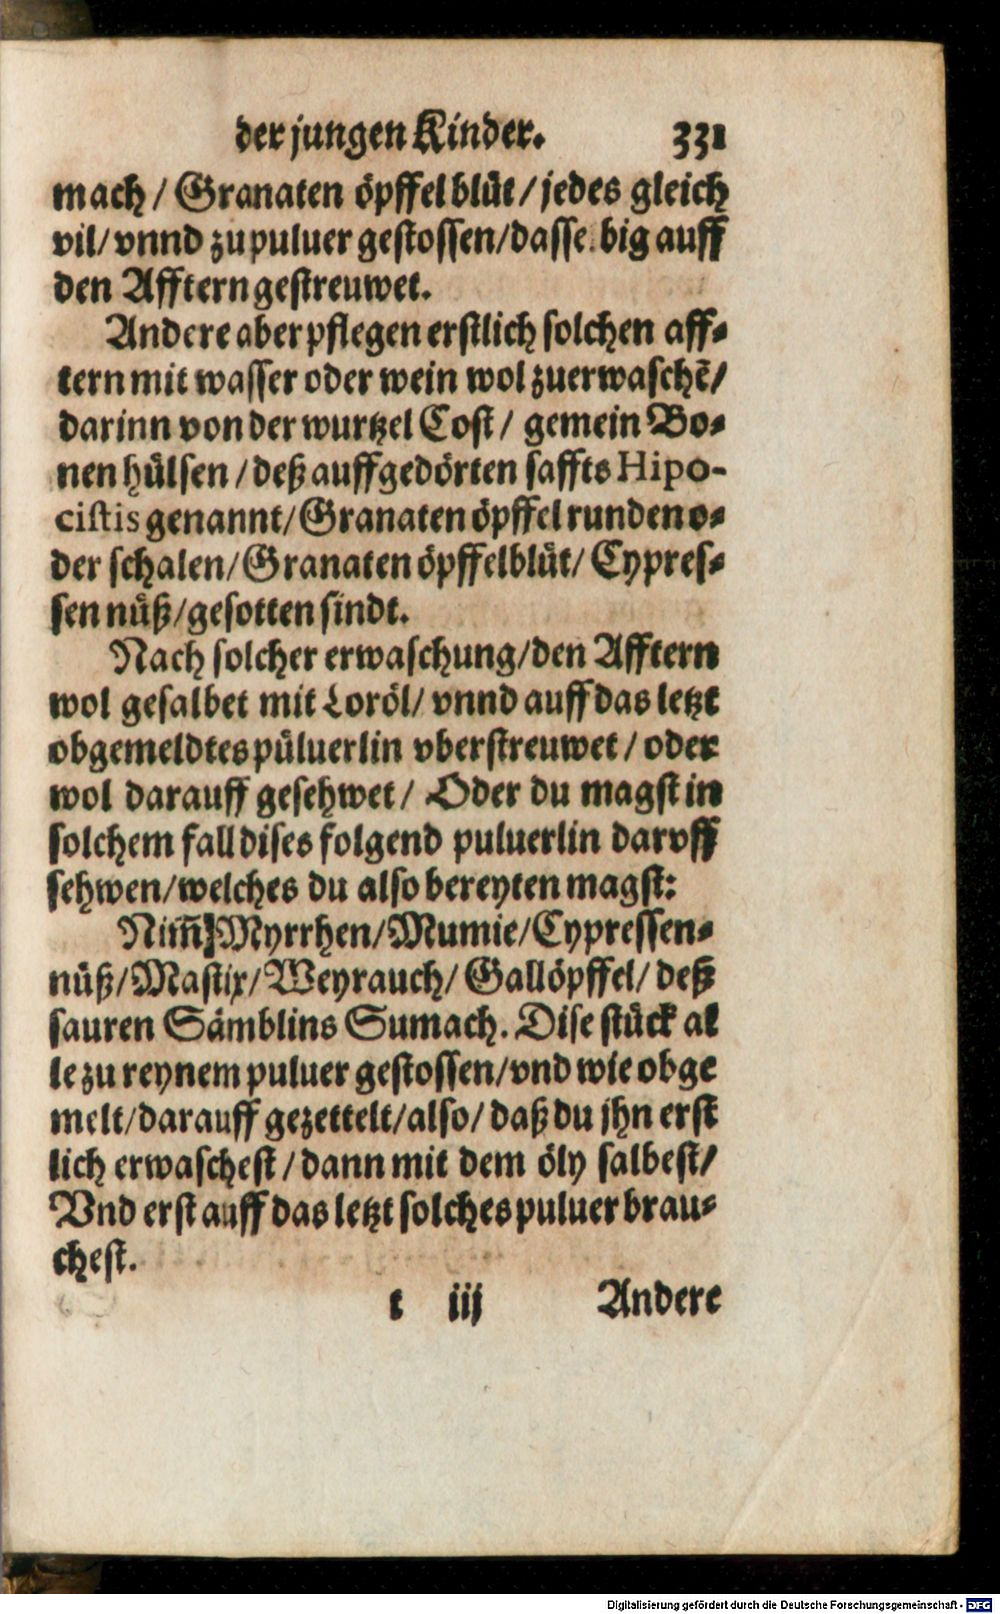 der jungen Kinder. 331
mach / Granaten öpffel blüt / jedes gleich
vil / vnnd zu puluer gestossen / dasse. big auff
den Afftern gestreuwet.
Andere aber pflegen erstlich solchen aff-
tern mit wasser oder wein wol zuerwaschē /
darinn von der wurtzel Cost / gemein Bo-
nen hülsen / deß auffgedörten saffts Hipo-
cistis genannt / Granaten öpffel runden o-
der schalen / Granaten öpffelblüt / Cypres-
sen nüß / gesotten sindt.
Nach solcher erwaschung / den Afftern
wol gesalbet mit Loröl / vnnd auff das letzt
obgemeldtes püluerlin vberstreuwet / oder
wol darauff gesehwet / Oder du magst in
solchem fall dises folgend puluerlin darvff
sehwen / welches du also bereyten magst:
Nim̃] Myrrhen / Mumie / Cypressen-
nüß / Mastix / Weyrauch / Gallöpffel / deß
sauren Sämblins Sumach. Dise stück al
le zu reynem puluer gestossen / vnd wie obge
melt / darauff gezettelt / also / daß du jhn erst
lich erwaschest / dann mit dem öly salbest /
Vnd erst auff das letzt solches puluer brau-
chest.
t iij Andere
Digitalisierung gefördert durch die Deutsche Forschungsgemeinschaft - DFG